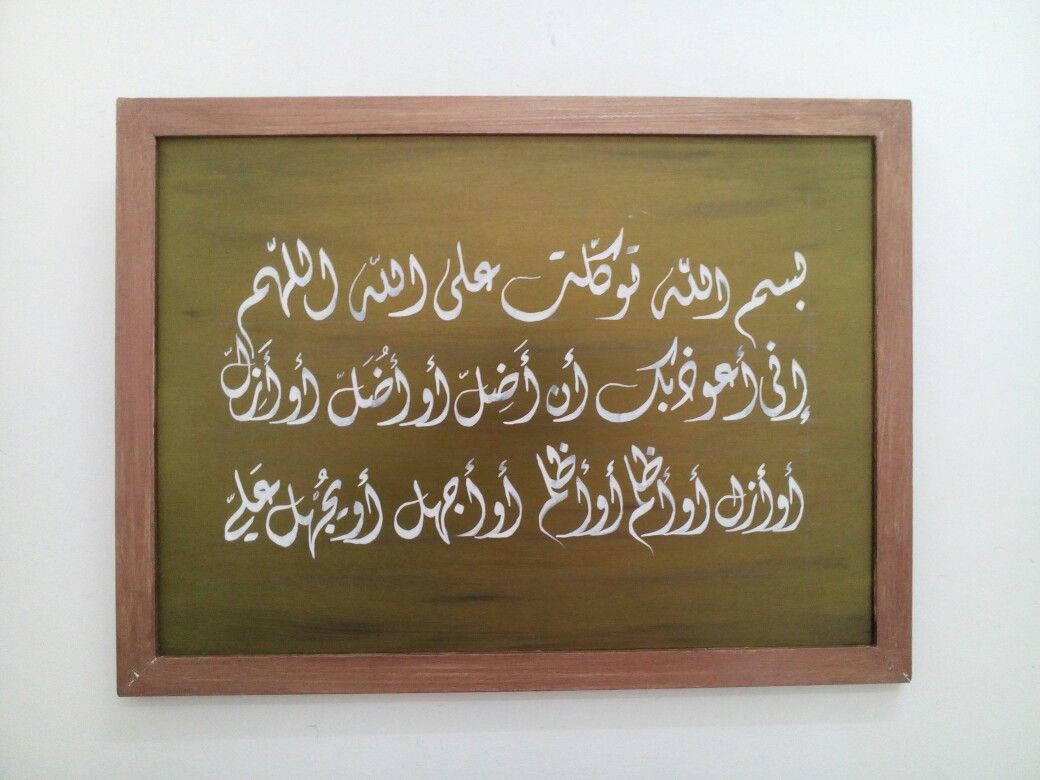 بسم الله توكّلت على الله اللهّم
إنى أعوذ بك أن أَضِلّ أو أُضَلّ أو أَزِلّ
أو أزل أو أظلم أو أظلم أو أجهل أو يُجهل عَليّ